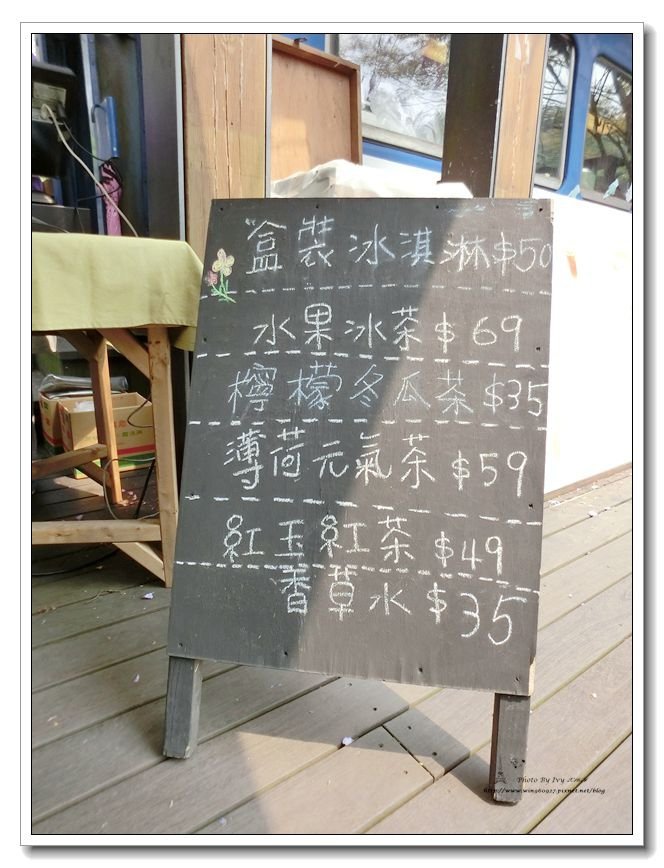 盒裝冰淇淋$50
水果冰茶$69
檸檬冬瓜茶$35
薄荷元氣茶$59
紅玉紅茶$49
香草水$35
Photo By Ivy
http://www.win960927.pixnet.net/blog